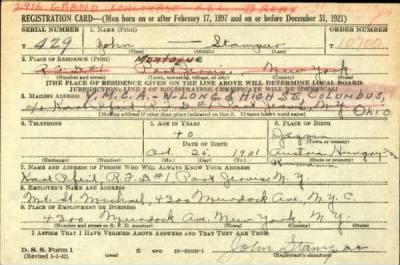 2916 GRAND
REGISTRATION CARD—(Men born on or after February 17, 1897 and on or before December 31, 1921)
SERIAL NUMBER 1. NAME (Print) ORDER NUMBER
T 429 John — Stamper 10700
(First) (Middle) (Last)
2. PLACE OF RESIDENCE (Print) Montague
R.F.D #1 New York
(Number and street) (Town, township, village, or city) (County) (State)
[THE PLACE OF RESIDENCE GIVEN ON THE LINE ABOVE WILL DETERMINE LOCAL BOARD
JURISDICTION; LINE 2 OF REGISTRATION CERTIFICATE WILL BE IDENTICAL]
3. MAILING ADDRESS Y.M.C.A. - W. LONG & HIGH ST, COLUMBUS,
R.F.D #1 N.Y. Ohio
4. TELEPHONE 5. AGE IN YEARS 6. PLACE OF BIRTH
40
DATE OF BIRTH (Town or county)
Oct. 25, 1901 Austria Hungary
(Exchange) (Number) (Mo.) (Day) (Yr.) (State or country)
7. NAME AND ADDRESS OF PERSON WHO WILL ALWAYS KNOW YOUR ADDRESS
R.F.D #1, Port Jervis N.Y.
8. EMPLOYER'S NAME AND ADDRESS
Mt. St. Michael, 4300 Murdock Ave. N.Y.C
9. PLACE OF EMPLOYMENT OR BUSINESS
4300 Murdock Ave. New York, N.Y.
(Number and street or R. F. D. number) (Town) (County) (State)
I AFFIRM THAT I HAVE VERIFIED ABOVE ANSWERS AND THAT THEY ARE TRUE.
D. S. S. Form 1
(Revised 1-1-42) GPO John Stamper